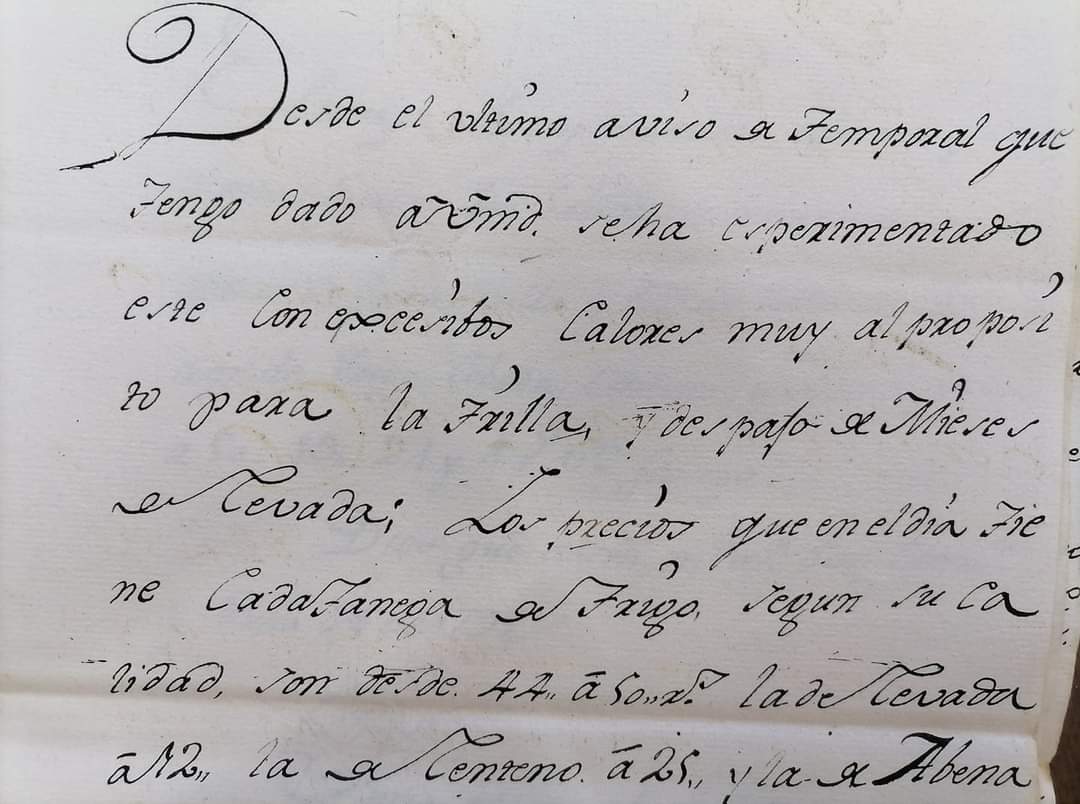 Desde el ultimo aviso de Temporal que
Tengo dado a Vmd. se ha esperimentado
este Con excesibos Calores muy al proposi
to para la Trilla, y despaſo de Mieses
de Zevada; Los precios que en el dia Tie
ne Cada Fanega de Trigo, segun su Ca
lidad, son desde 44,, á 50,, rs. la de Zevada
á 12,, la de Zenteno á 25,, y la de Abena